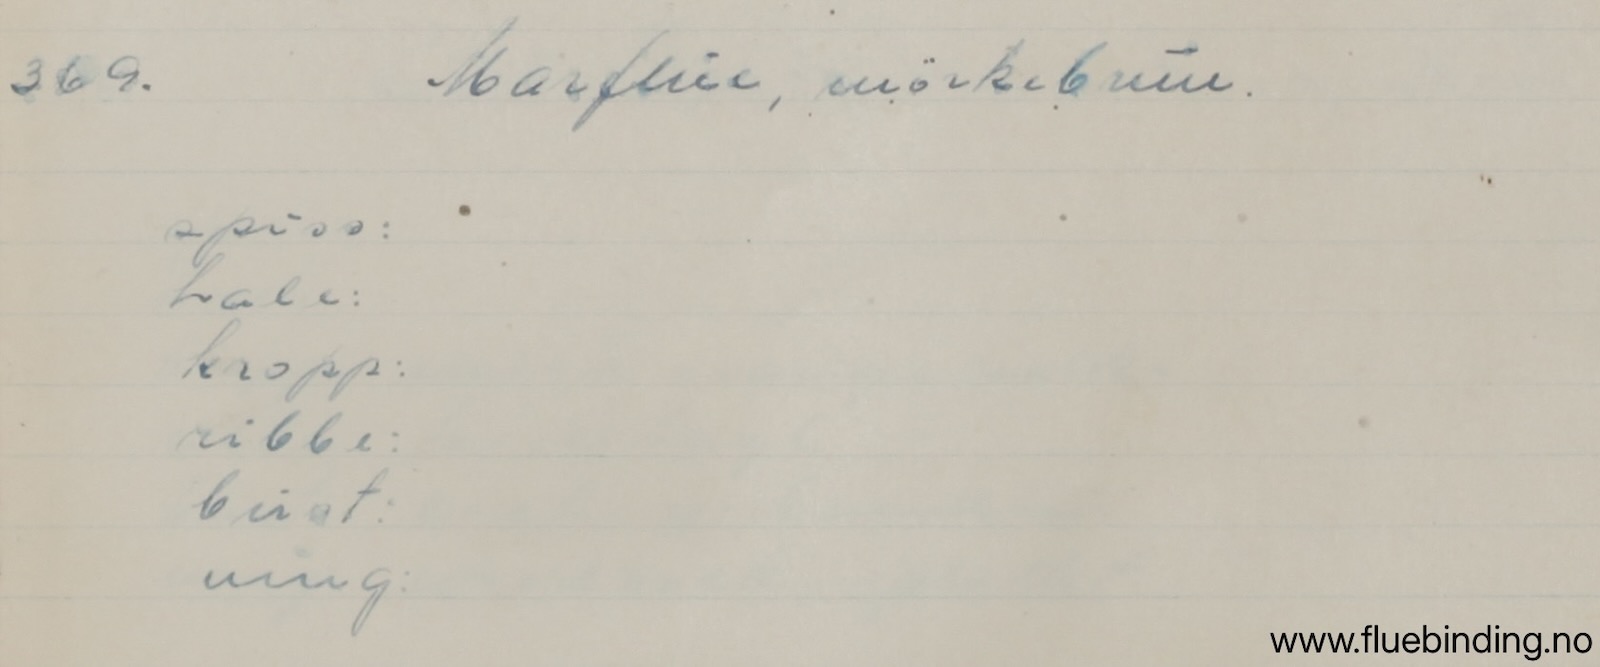 369. Marzflue, mörkebrun.
spiss:
hale:
kropp:
ribbe:
bust:
ving:
www.fluebinding.no